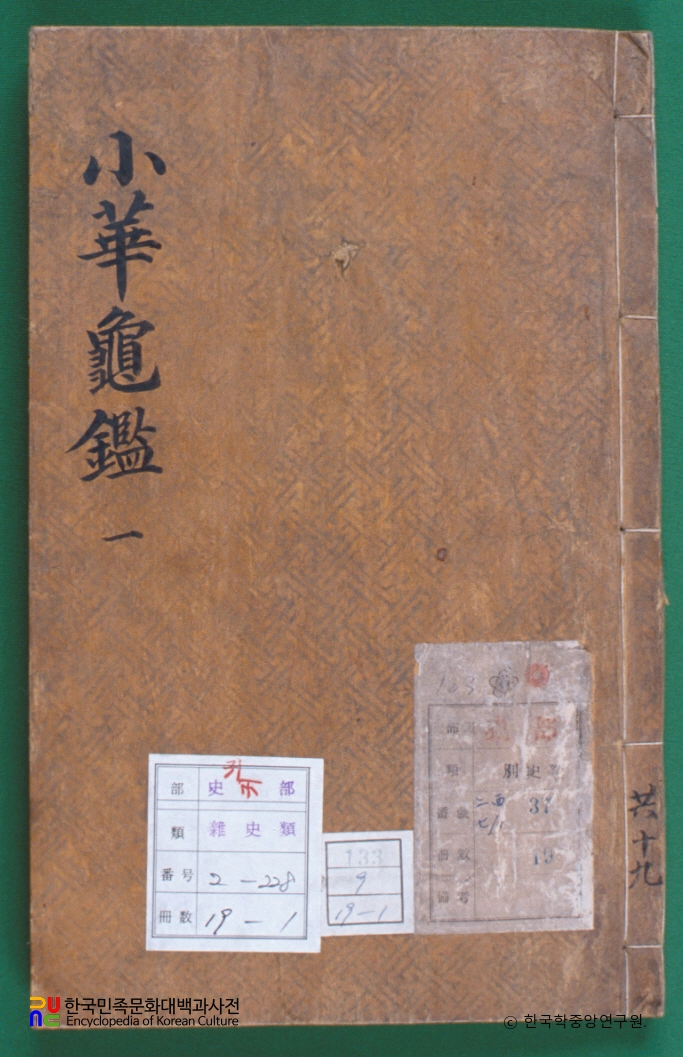 小華龜鑑
一
共十九
部 史 部
類 雜史類
番号 2-228
冊数 19-1
133
9
19-1
部
類 別史
番號 37
冊數 19
備考
한국민족문화대백과사전
Encyclopedia of Korean Culture
© 한국학중앙연구원